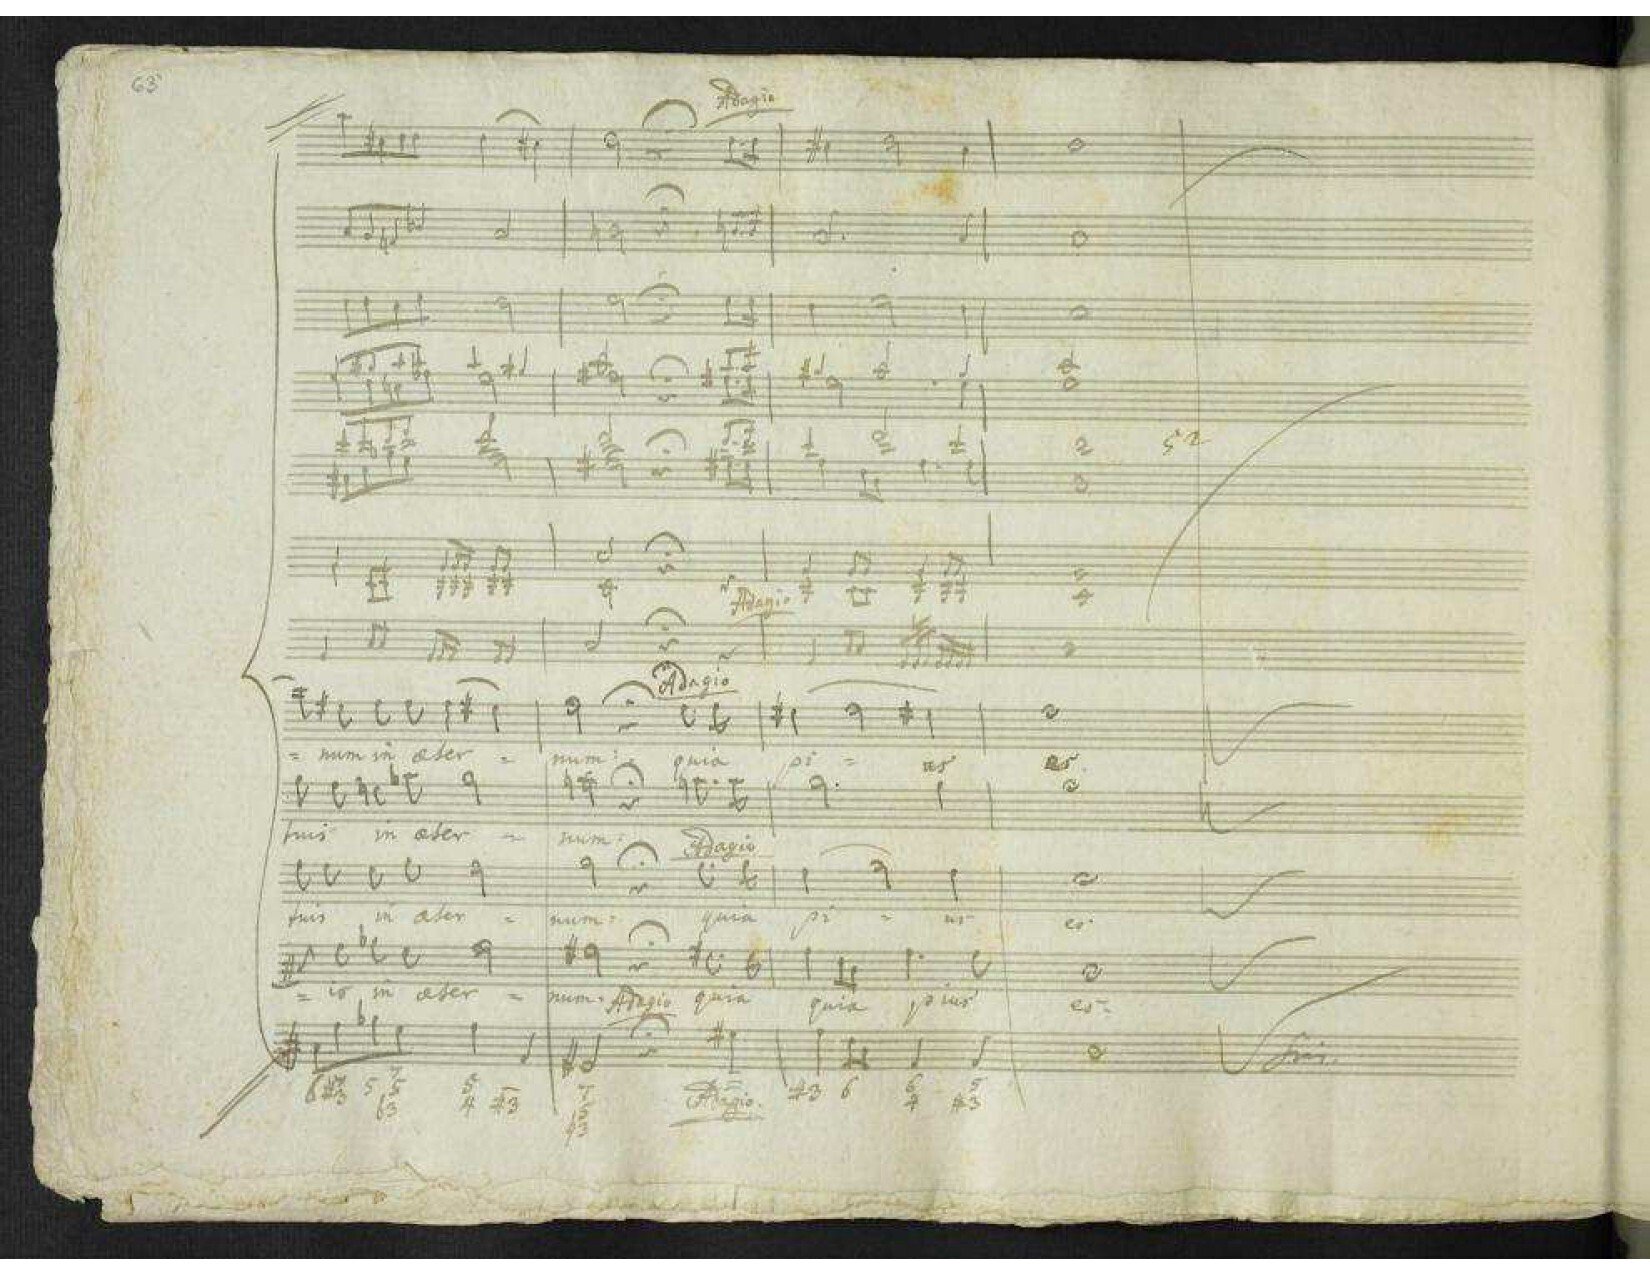 63
Adagio
52
Adagio
Adagio
= num in æter = num: quia pi = us es.
tuis in æter = num:
Adagio
tuis in æter = num: quia pi = us es.
= is in æter = num: quia quia pius es.
Adagio
fin.
6 5 5 6 5
#3 63 4 #3 #3 6 4 #3
Adagio.